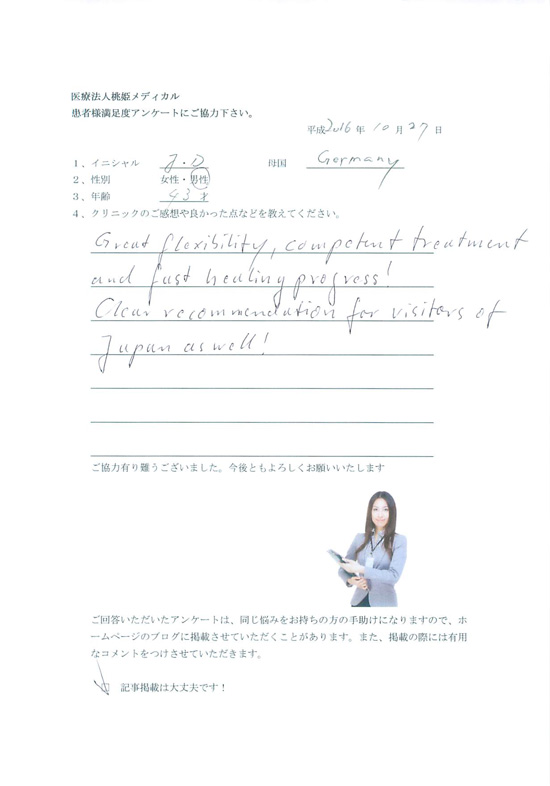 医療法人桃姫メディカル
患者様満足度アンケートにご協力下さい。
平成2016年 10月27日
1、イニシャル J.D 母国 Germany
2、性別 女性・男性
3、年齢 43才
4、クリニックのご感想や良かった点などを教えてください。
Great flexibility, competent treatment
and fast healing progress!
Clear recommendation for visitors of
Japan as well!
ご協力有り難うございました。今後ともよろしくお願いいたします
ご回答いただいたアンケートは、同じ悩みをお持ちの方の手助けになりますので、ホ
ームページのブログに掲載させていただくことがあります。また、掲載の際には有用
なコメントをつけさせていただきます。
□ 記事掲載は大丈夫です！